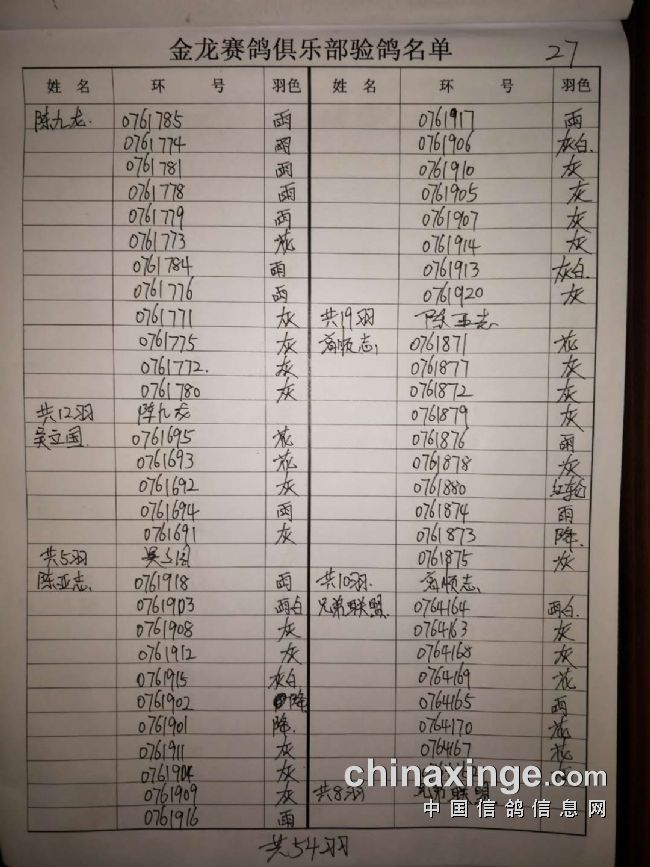 金龙赛鸽俱乐部验鸽名单
27
姓 名 环 号 羽色
陈九龙 0761785 雨
0761774 雨
0761781 雨
0761778 雨
0761779 雨
0761773 花
0761784 雨
0761776 雨
0761771 灰
0761775 灰
0761772. 灰
0761780 灰
共12羽 陈九龙
吴立国 0761695 花
0761693 花
0761692 灰
0761694 雨
0761691 灰
共5羽
陈亚志. 0761918 雨
0761903 雨白
0761908 灰
0761912 灰
0761915 灰白
0761902 降
0761901 降.
0761911 灰
0761904 灰
0761909 灰
0761916 雨
姓 名 环 号 羽色
0761917 雨
0761906 灰白.
0761910 灰
0761905 灰
0761907 灰
0761914 灰
0761913 灰白.
0761920 灰
共19羽 陈亚志
顺志 0761871 花
0761877 灰
0761872 灰
0761879 灰
0761876 雨
0761878 灰
0761880 红轮
0761874 雨
0761873 降.
0761875 灰
共10羽. 顺志
兄弟联盟 0764164 雨白
0764163 灰
0764168 灰
0764169 花
0764165 雨
0764170 花
0764167 花
共8羽 兄弟联盟
共54羽
chinaxinge.com
中国信鸽信息网